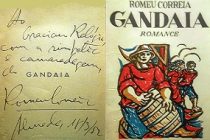 Ao
com a simpatia
e camaradagem
GANDAIA
Romeu Correia
Almada, 11/7/52
ROMEU CORREIA
GANDAIA
ROMANCE